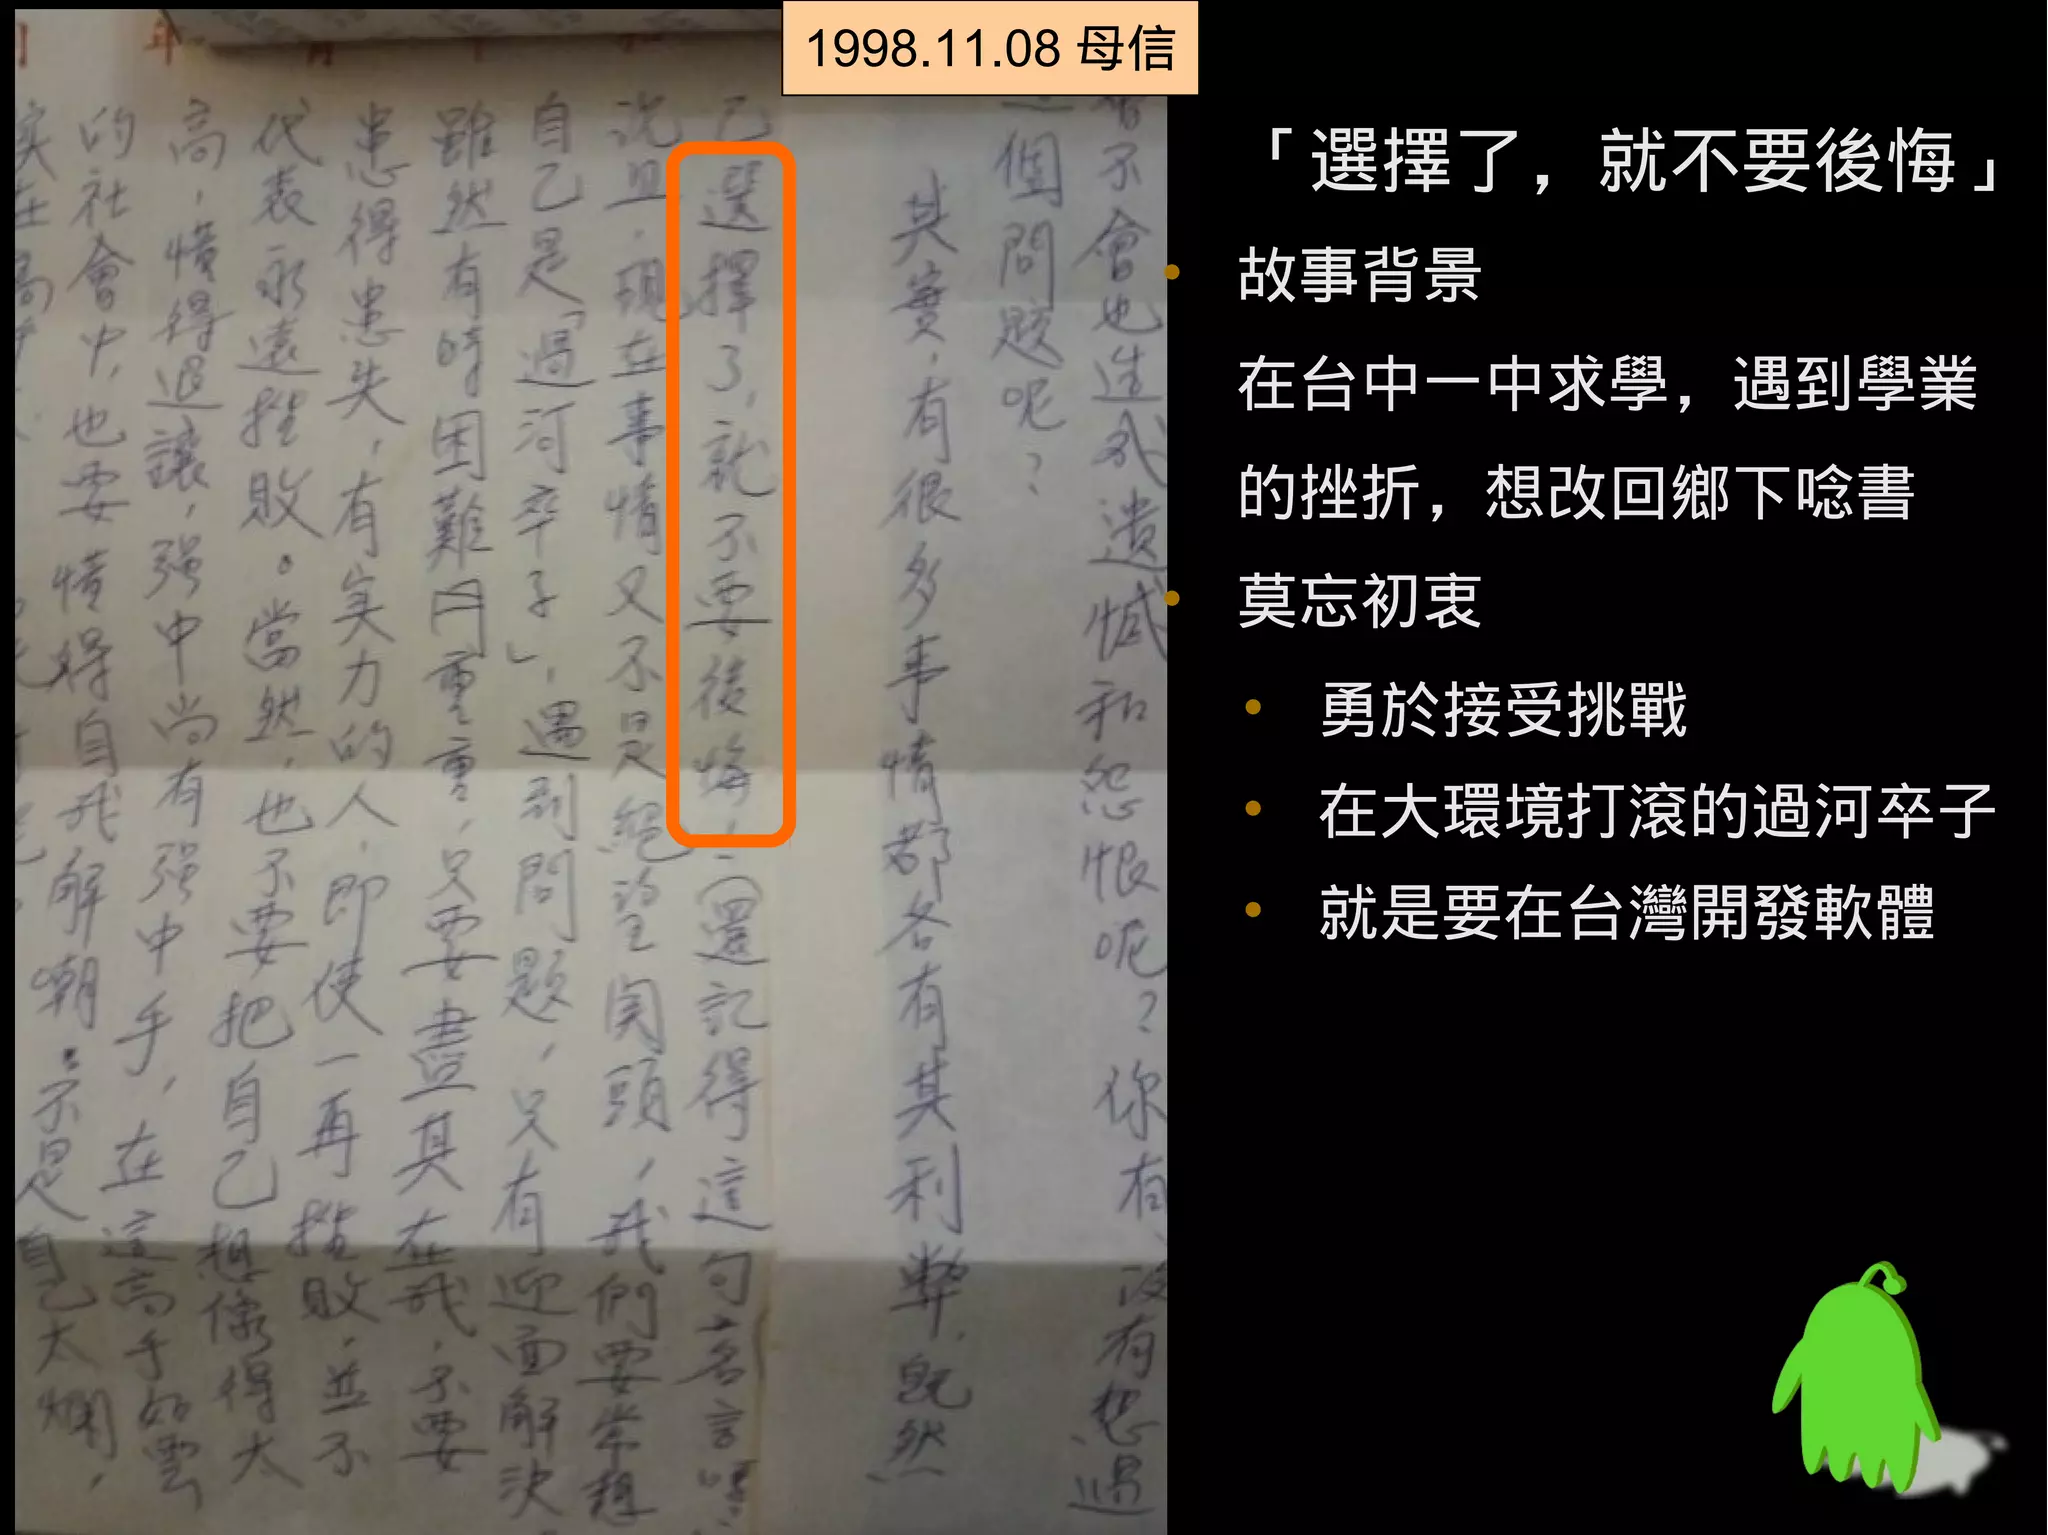 1998.11.08 母信
「選擇了，就不要後悔」
故事背景
在台中一中求學，遇到學業
的挫折，想改回鄉下唸書
莫忘初衷
勇於接受挑戰
在大環境打滾的過河卒子
就是要在台灣開發軟體
年 月
會不會也造成遺憾和怨恨呢？你有沒有想過
這個問題呢？
其實，有很多事情都各有其利弊，既然
已選擇了，就不要後悔，（還記得這句名言嗎
況且，現在事情又不是絕望關頭，我們要常想
自己是「過河卒子」，遇到問題，只有迎面解決
雖然有時困難重重，只要盡其在我，不要
患得患失，有實力的人，即使一再挫敗，並不
代表永遠挫敗。當然，也不要把自己想像得太
高，懂得退讓，强中尚有强中手，在這高手如雲
的社會中，也要懂得自我解嘲。不是自己太爛，
实在高手